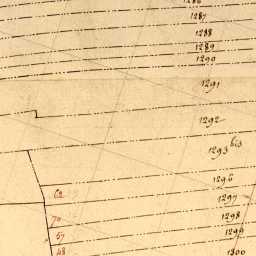 1286
1287
1288
1289
1290
1291
1292
1293 bis
1296
1297
1298
1299
1300